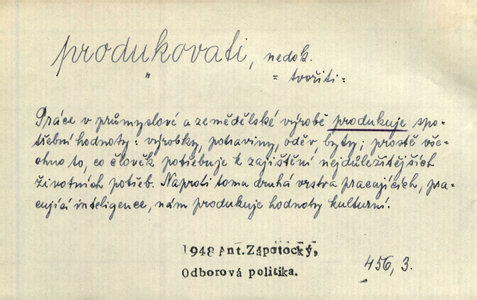 produkovati, nedok.
" = tvořiti =
Práce v průmyslové a zemědělské výrobě produkuje spo-
třební hodnoty: výrobky, potraviny, oděv, byty; prostě vše-
chno to, co člověk potřebuje k zajištění nejdůležitějších
životních potřeb. Naproti tomu druhá vrstva pracujících, pra-
cující inteligence, nám produkuje hodnoty kulturní.
1948 Ant.Zápotocký,
Odborová politika.
456, 3.